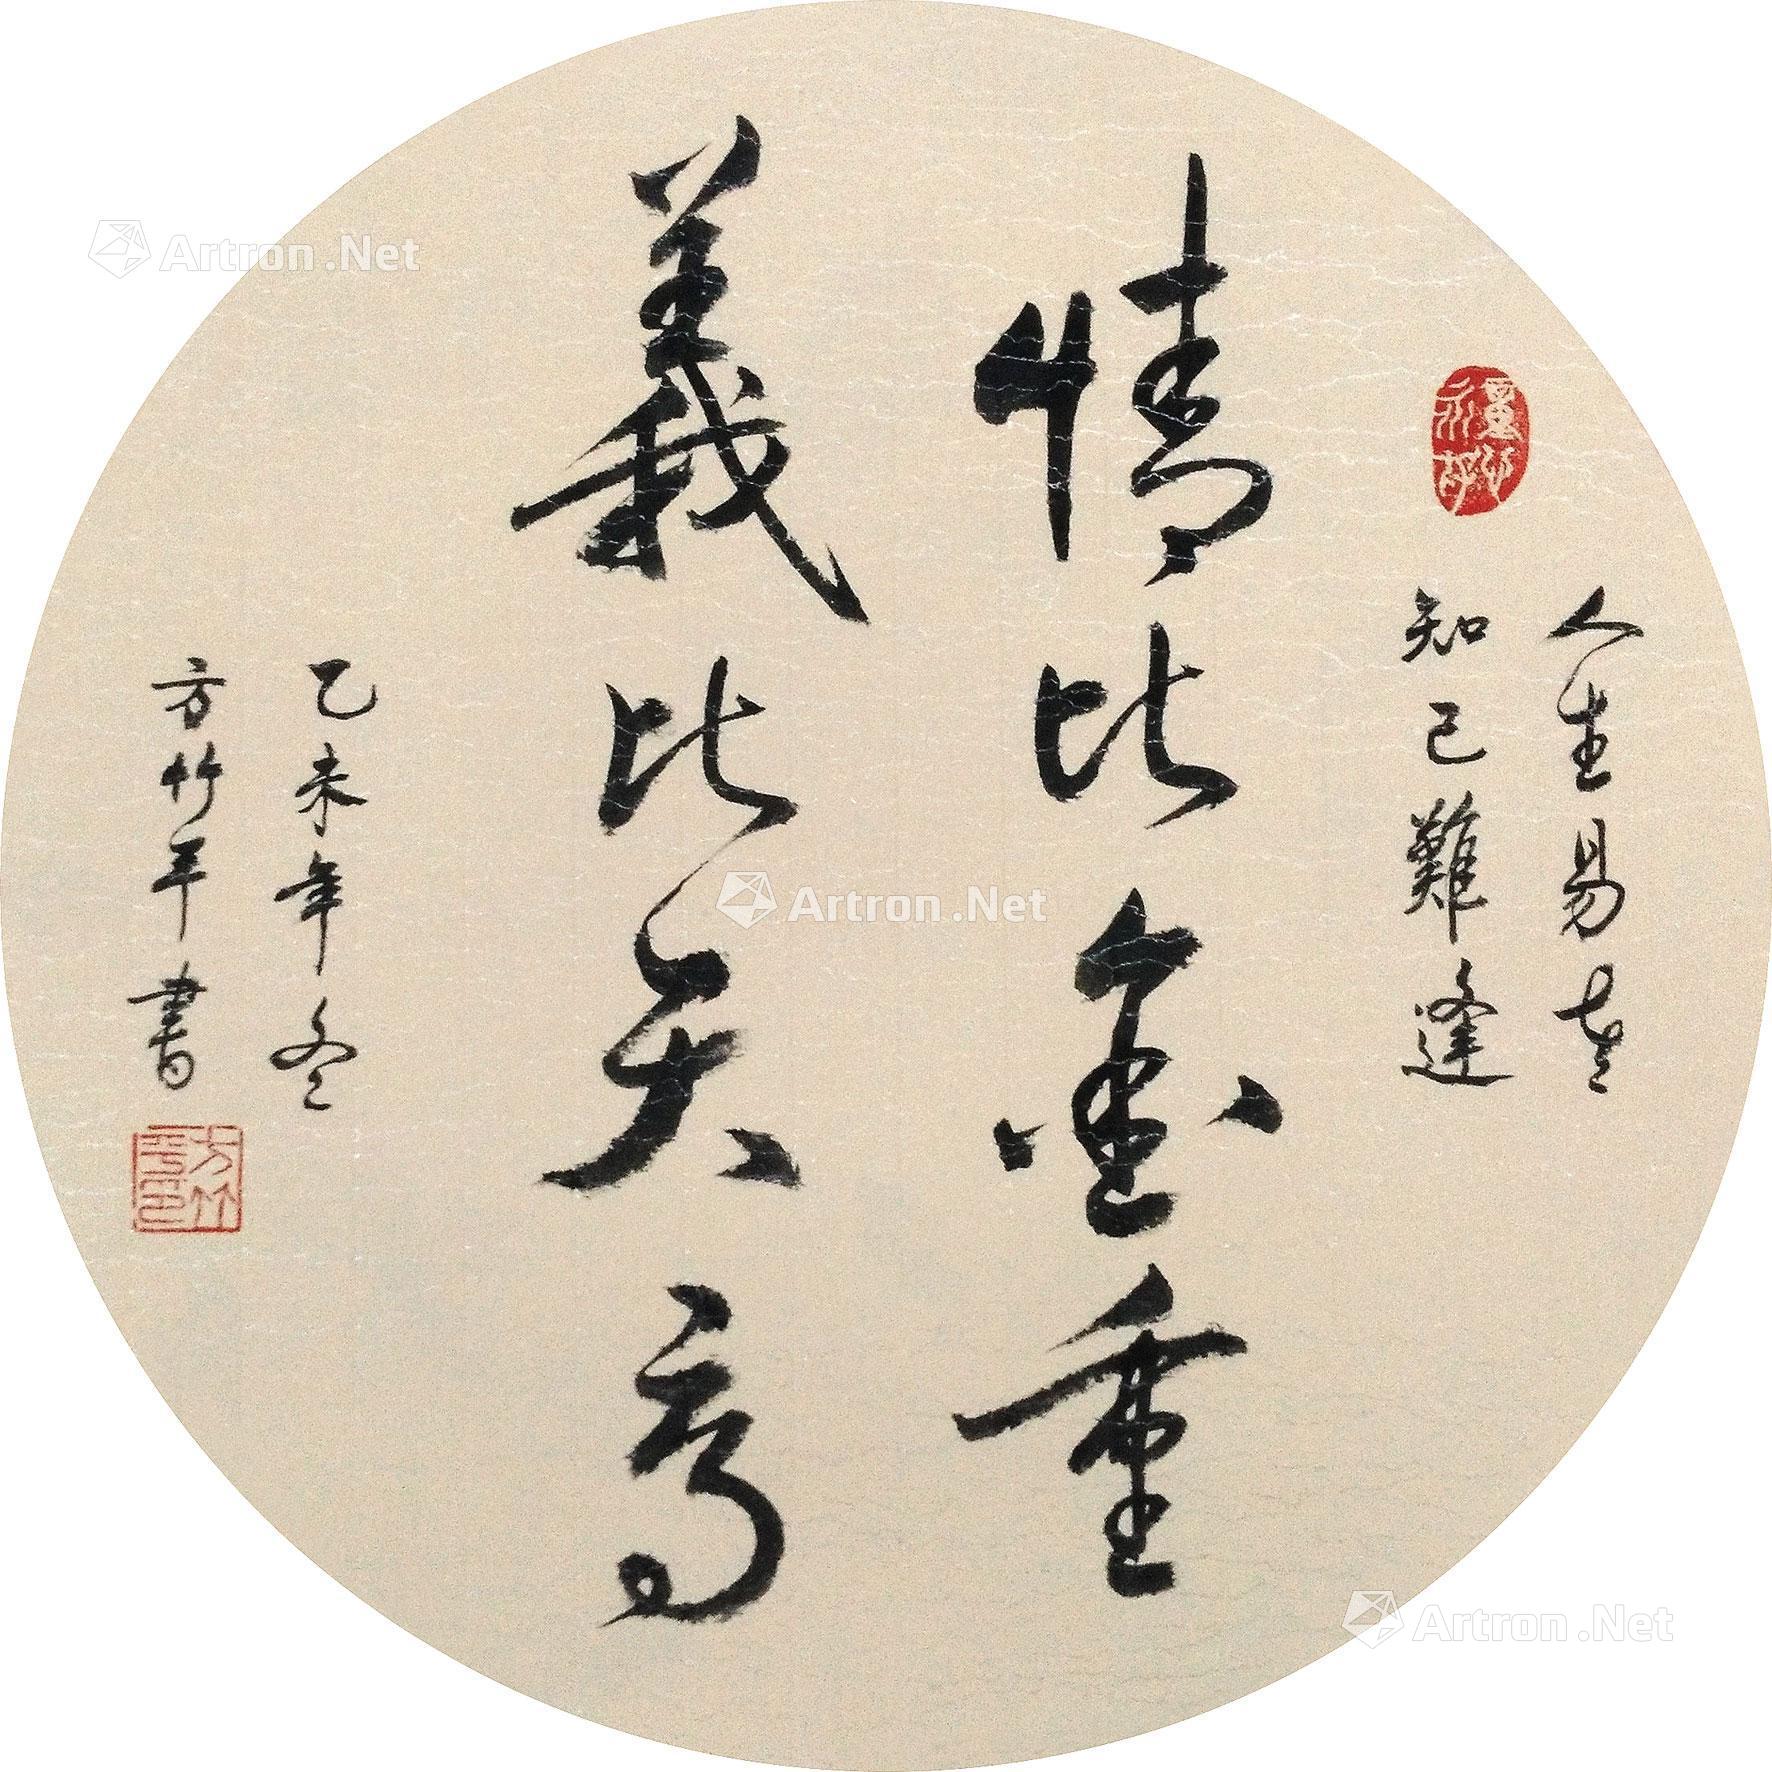 人生易老
知己難逢
情比金重
義比天高
乙未年冬
方竹平書
方竹平印
Artron.Net
Artron.Net
Artron.Net